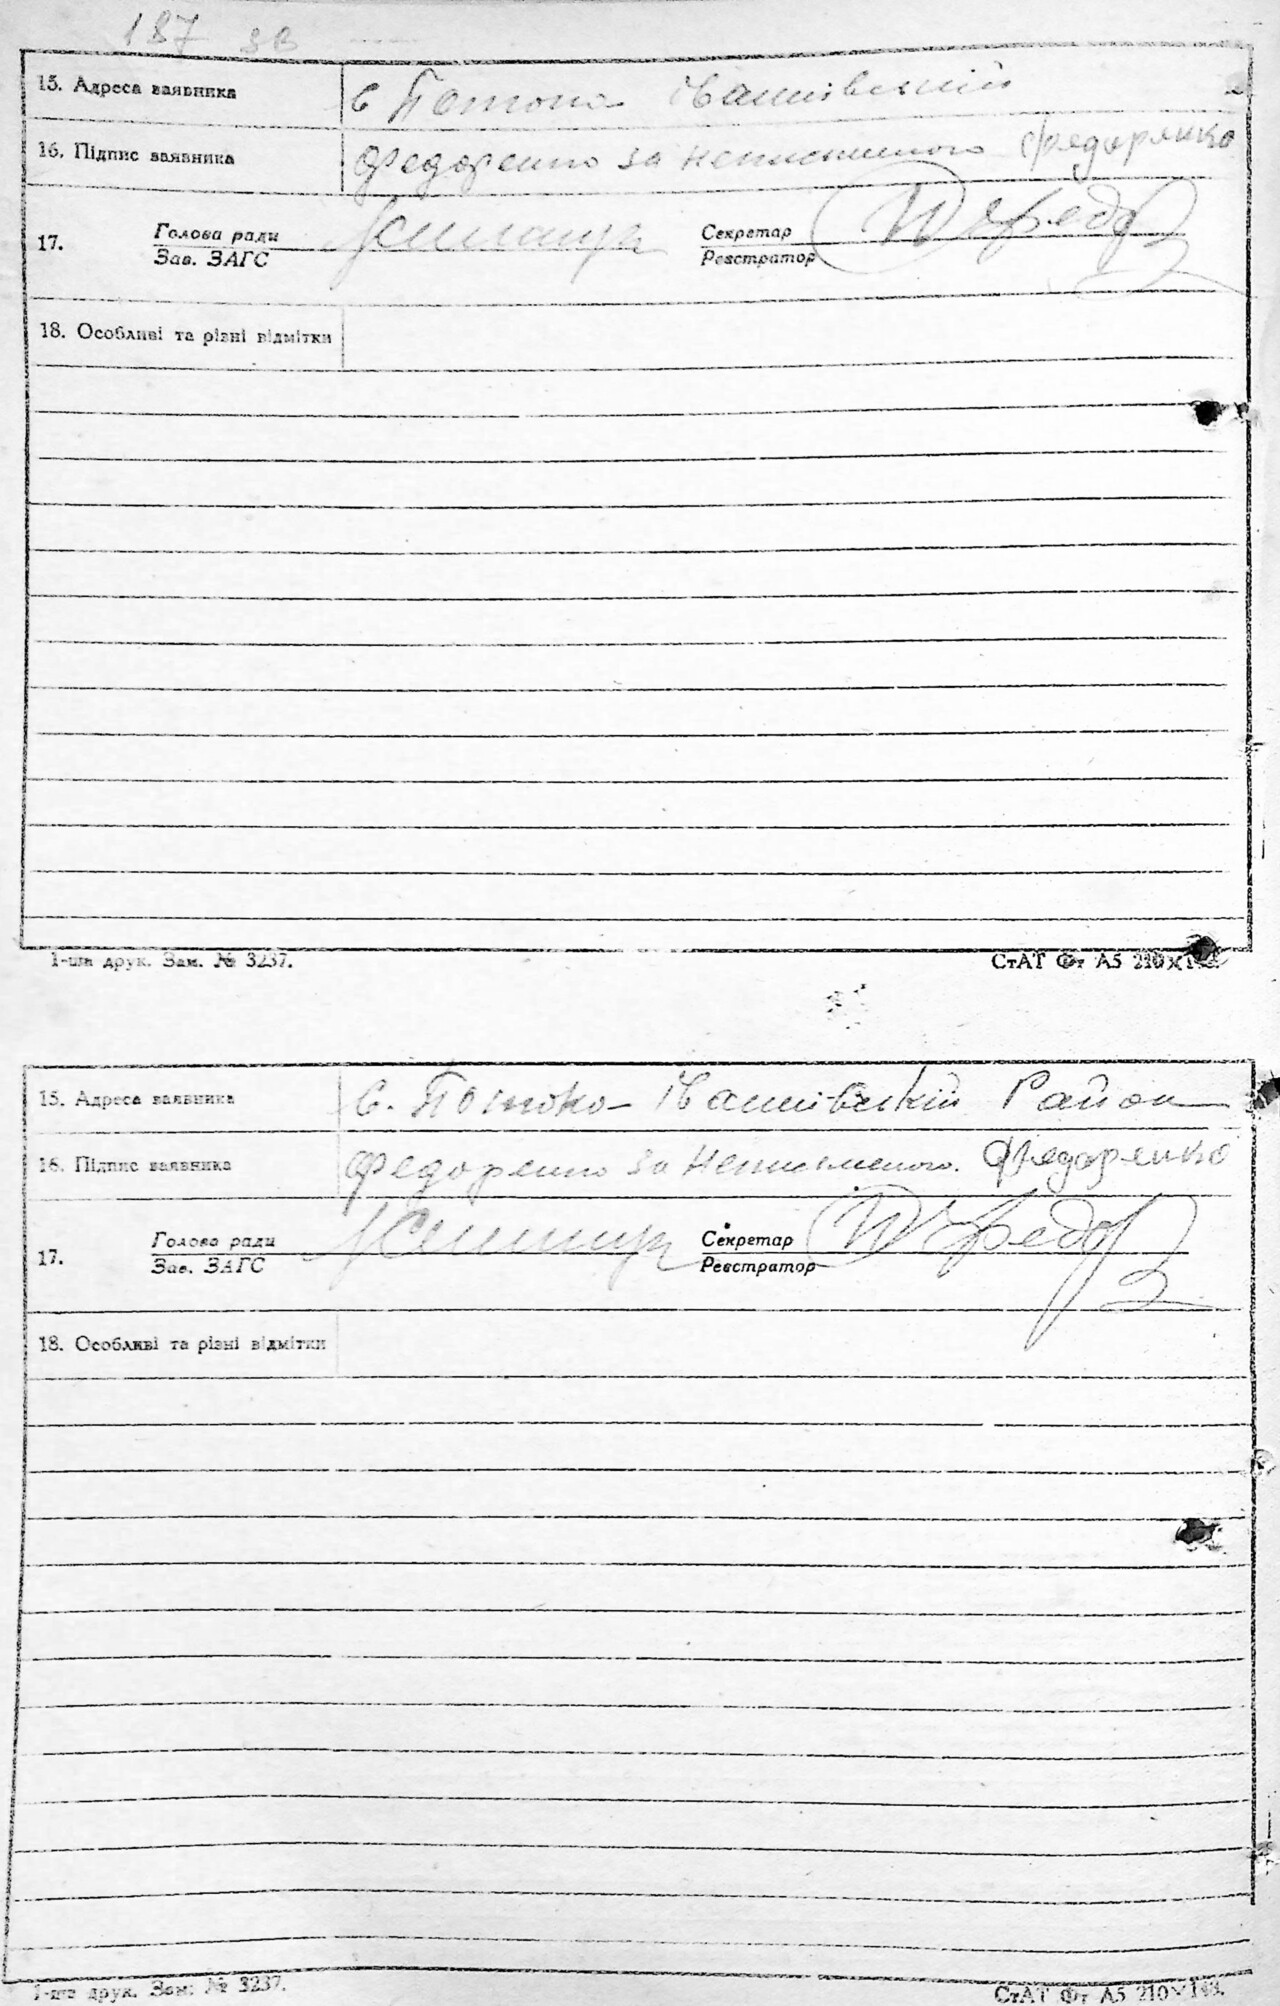 187 зв
15. Адреса заявника с Потоки
16. Підпис заявника Федоренко за неписьменого Федорянко
Голова ради Секретар
17.
Зав. ЗАГС Реєстратор
18. Особливі та різні відмітки
1-ша друк. Зам. № 3237. СтАТ Фт А5 210×148.
15. Адреса заявника с. Потоко- Район
16. Підпис заявника Федоренко за неписьменого. Федорянко
Голова ради Секретар
17.
Зав. ЗАГС Реєстратор
18. Особливі та різні відмітки
1-ша друк. Зам. № 3237. СтАТ Фт А5 210×148.